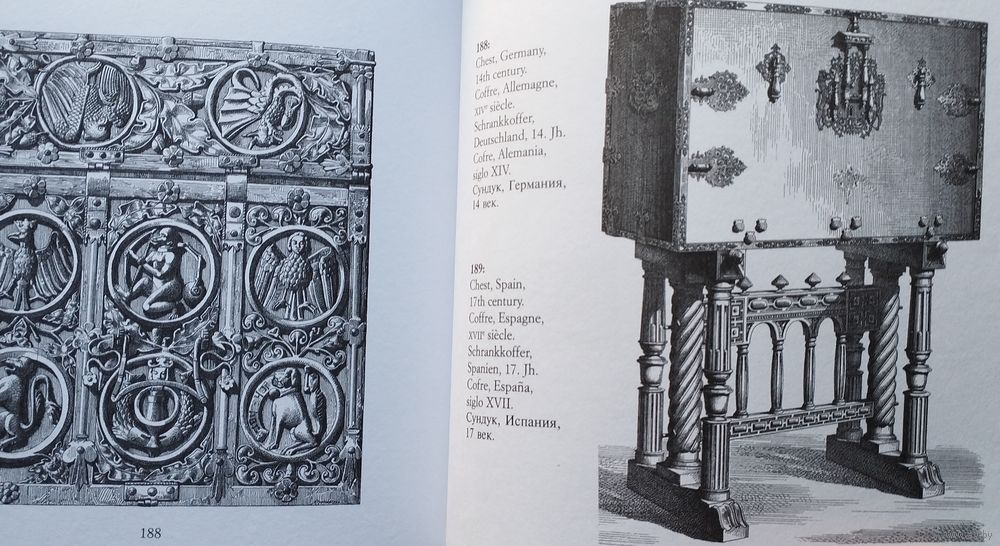 188:
Chest, Germany,
14th century.
Coffre, Allemagne,
XIVe siècle.
Schrankkoffer,
Deutschland, 14. Jh.
Cofre, Alemania,
siglo XIV.
Сундук, Германия,
14 век.
189:
Chest, Spain,
17th century.
Coffre, Espagne,
XVIIe siècle.
Schrankkoffer,
Spanien, 17. Jh.
Cofre, España,
siglo XVII.
Сундук, Испания,
17 век.
188